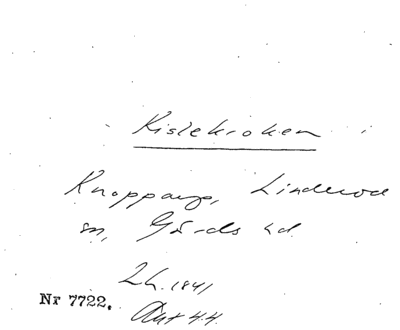 Kislekroken
Knopparp, Linderöd
sn, Gärds hd
Lh. 1841
Nr 7722.
Ant 44